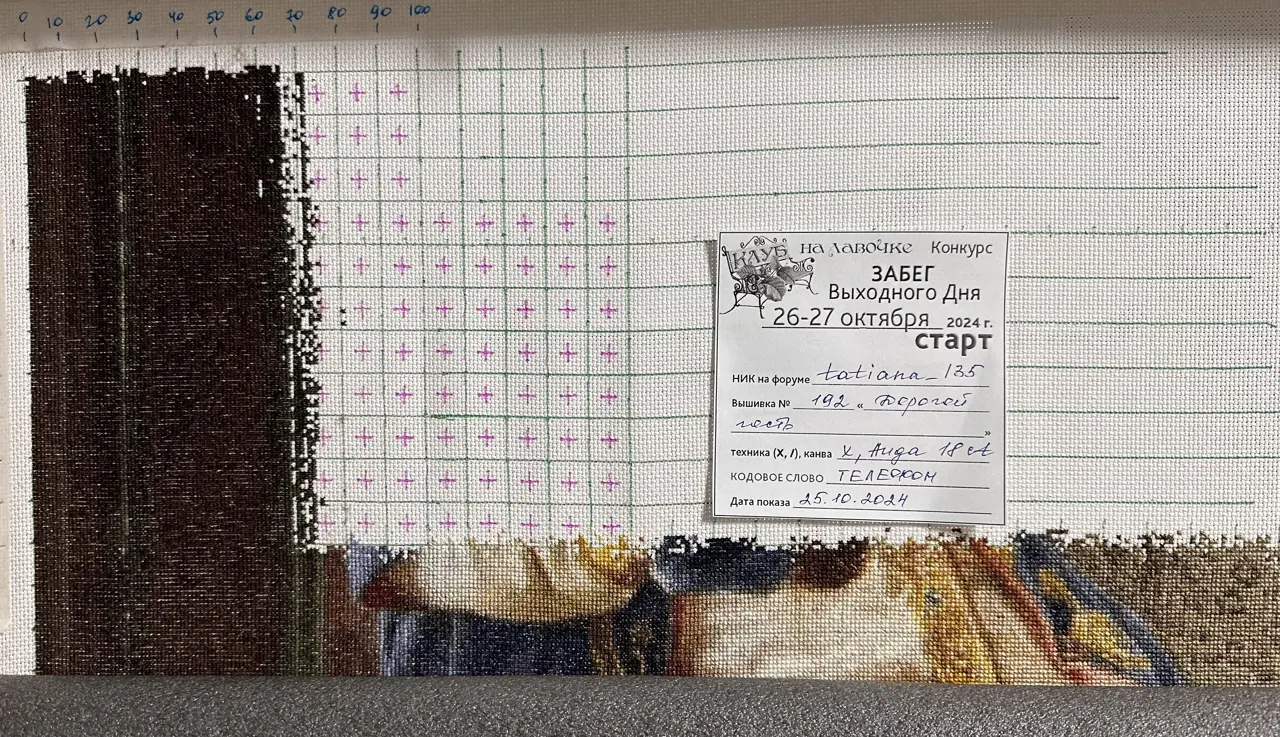 0 10 20 30 40 50 60 70 80 90 100
КЛУБ на лавочке Конкурс
ЗАБЕГ
Выходного Дня
26-27 октября 2024 г.
старт
НИК на форуме tatiana_135
Вышивка № 192 « Дорогой
гость »
техника (X, /), канва X, Аида 18 ct
КОДОВОЕ СЛОВО ТЕЛЕФОН
Дата показа 25.10.2024